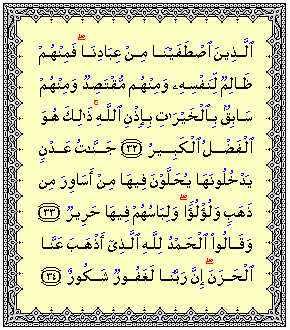 ٱلَّذِينَ ٱصْطَفَيْنَا مِنْ عِبَادِنَاۖ فَمِنْهُمْ
ظَالِمٌ لِّنَفْسِهِۦ وَمِنْهُم مُّقْتَصِدٌ وَمِنْهُمْ
سَابِقٌۢ بِٱلْخَيْرَٰتِ بِإِذْنِ ٱللَّهِۚ ذَٰلِكَ هُوَ
ٱلْفَضْلُ ٱلْكَبِيرُ ﴿٣٢﴾ جَنَّٰتُ عَدْنٍ
يَدْخُلُونَهَا يُحَلَّوْنَ فِيهَا مِنْ أَسَاوِرَ مِن
ذَهَبٍ وَلُؤْلُؤًاۖ وَلِبَاسُهُمْ فِيهَا حَرِيرٌ ﴿٣٣﴾
وَقَالُوا۟ ٱلْحَمْدُ لِلَّهِ ٱلَّذِىٓ أَذْهَبَ عَنَّا
ٱلْحَزَنَۖ إِنَّ رَبَّنَا لَغَفُورٌ شَكُورٌ ﴿٣٤﴾